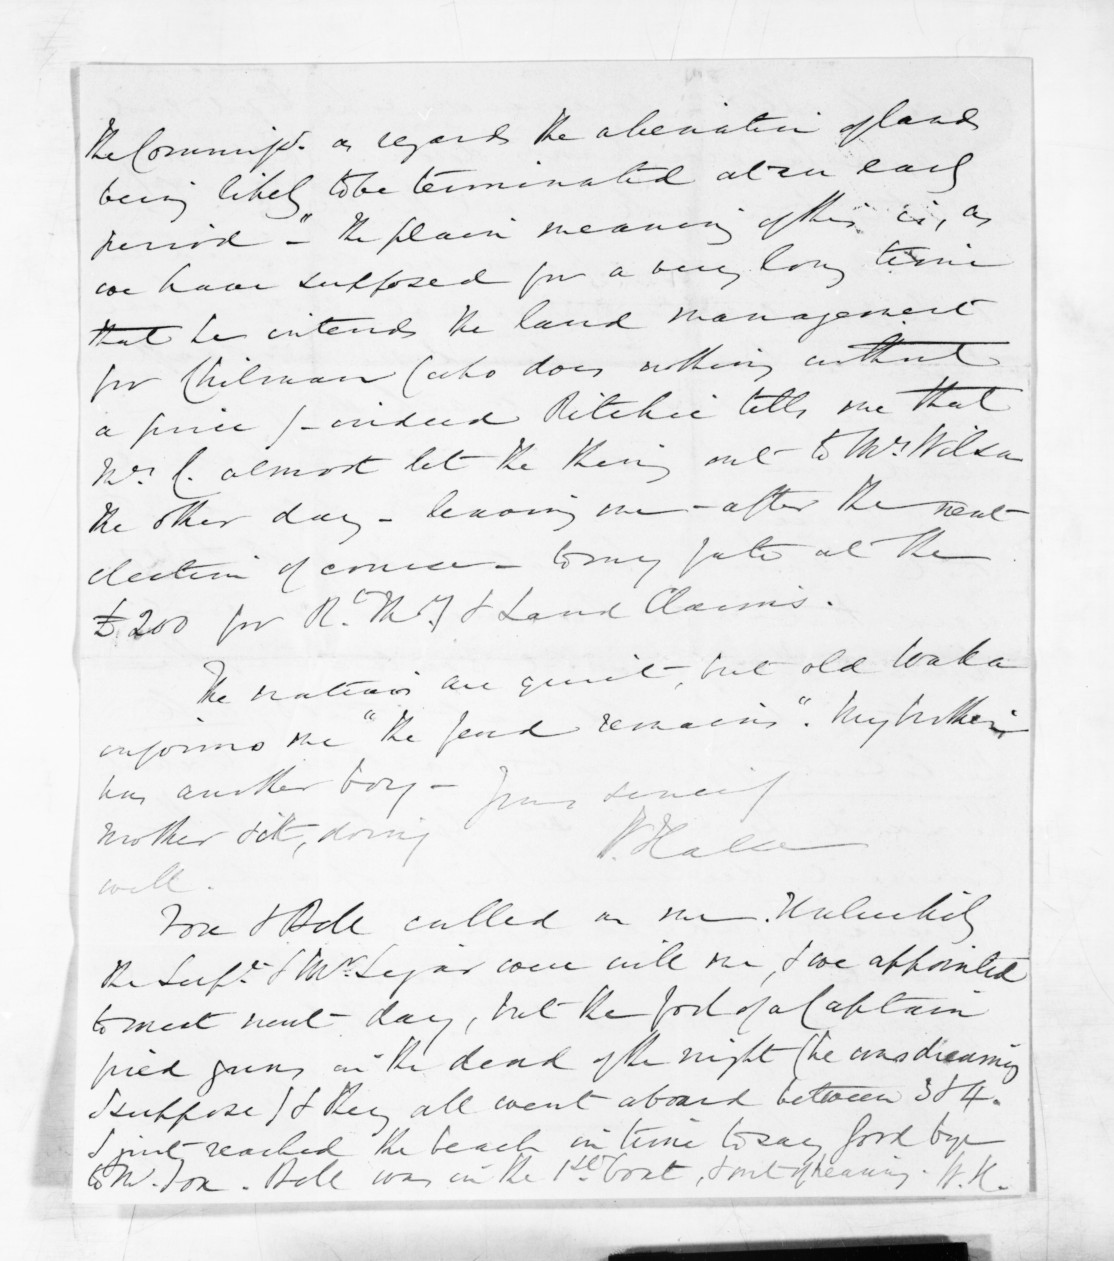 the Commissr. as regards the alienation of lands
being likely to be terminated at an early
period" - the plain meaning of this is, as
we have supposed for a very long time
that he intends the land management
for Chilman (who does nothing without
a price) - indeed Ritchie tells me that
Mr C. almost let the thing out to Mr Wilson
the other day - leaving me - after the next
election of course - to my fate at the
£200 for R. Mr. & Land Claims.
The natives are quiet, but old Waka
informs me "the feud remains". My brother
has another boy -
mother &c, doing
well.
Yours sincerely
W. Halse
Fox & Bell called on me. Unluckily
the Supt. & Mr. were with me, & we appointed
to meet next day, but the fool of a Captain
fired guns in the dead of the night (he was dreaming
I suppose) & they all went aboard between 3 & 4.
I just reached the beach in time to say good bye
to Mr. Fox. Bell was in the 1st boat, & out of hearing. W.H.